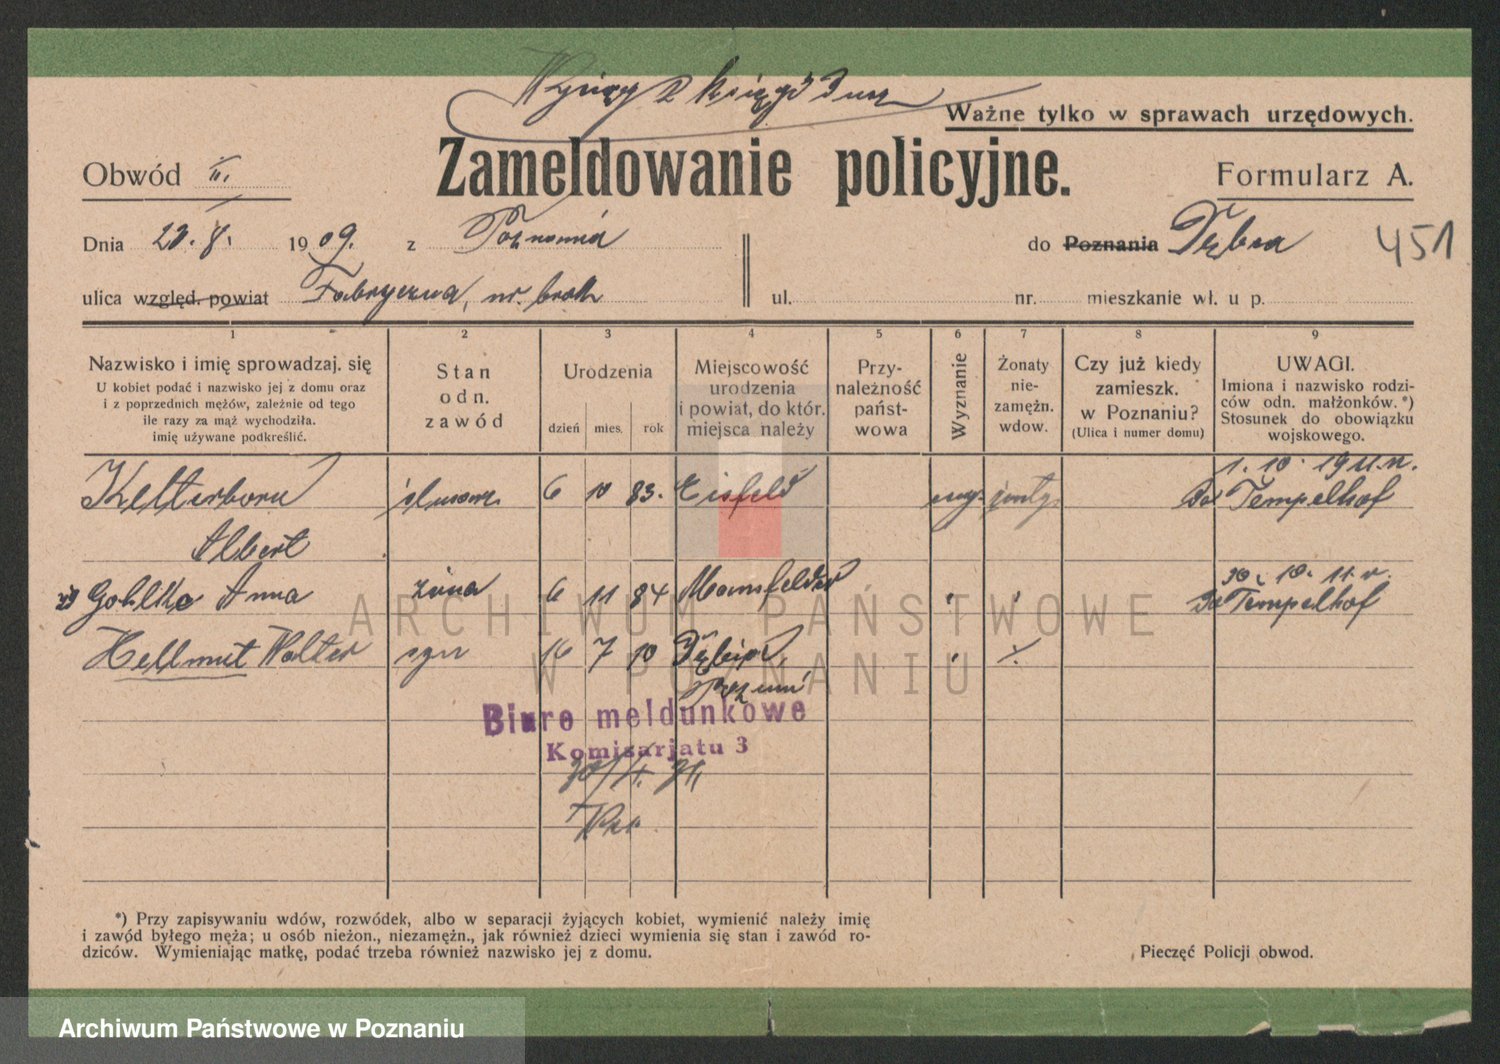 Wyciąg z księgi
Ważne tylko w sprawach urzędowych.
Zameldowanie policyjne.
Obwód III.
Formularz A.
Dnia 8. 1909. z Poznania do Poznania Dębca 451
ulica względ. powiat Fabryczna, nr. brak ul. nr. mieszkanie wł. u p.
1 2 3 4 5 6 7 8 9
Nazwisko i imię sprowadzaj. się
U kobiet podać i nazwisko jej z domu oraz
i z poprzednich mężów, zależnie od tego
ile razy za mąż wychodziła.
imię używane podkreślić.
Stan
odn.
zawód
Urodzenia
dzień mies. rok
Miejscowość
urodzenia
i powiat, do któr.
miejsca należy
Przy-
należność
państ-
wowa
Wyznanie
Żonaty
nie-
zamężn.
wdow.
Czy już kiedy
zamieszk.
w Poznaniu?
(Ulica i numer domu)
UWAGI.
Imiona i nazwisko rodzi-
ców odn. małżonków.*)
Stosunek do obowiązku
wojskowego.
1. 10. 1911.
Kelterborn ślusarz 6 10 83. Eisfeld ewg. żonaty Tempelhof
Albert
30. 10. 11.
Gohlke Anna żona 6 11 84 Mansfelder Tempelhof
Hellmut Walter syn 16 7 10 Dębiec
Poznań
Biuro meldunkowe
Komisarjatu 3
*) Przy zapisywaniu wdów, rozwódek, albo w separacji żyjących kobiet, wymienić należy imię
i zawód byłego męża; u osób nieżon., niezamężn., jak również dzieci wymienia się stan i zawód ro-
dziców. Wymieniając matkę, podać trzeba również nazwisko jej z domu.
Pieczęć Policji obwod.
ARCHIWUM PAŃSTWOWE
W POZNANIU
Archiwum Państwowe w Poznaniu